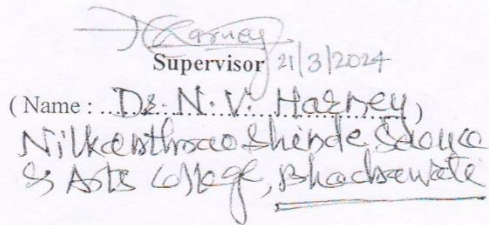 Supervisor 21/3/2024
(Name : Dr. N. V. Harney)
Nilkanthrao Shinde Science
& Arts College, Bhadrawati